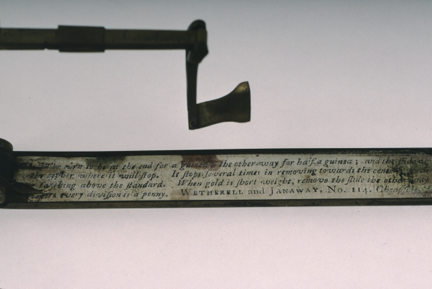 turn it being the end for a The other way for half a guinea ; and the
the center, where it will stop. It stops several times in removing towards the
farthing above the standard. When gold is short weight, remove the slide the other
every division is a penny. WETHERELL and JANAWAY, No. 114, Cheapside